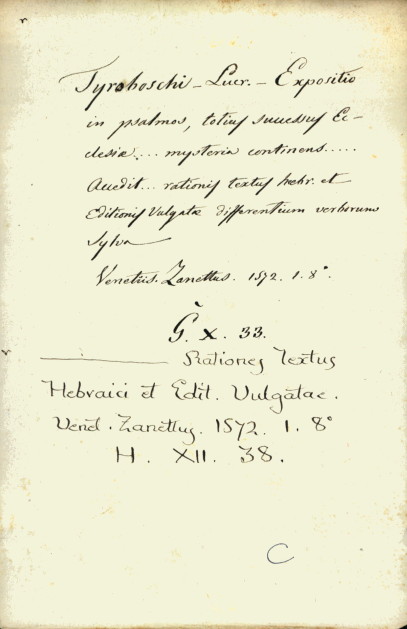 Tyroboschi - Lucr. - Expositio
in psalmos, totius successus Ec-
clesiæ... mysteria continens.....
Accedit... rationis textus hebr. et
Editionis Vulgatæ differentium verborum
sylva
Venetiis. Zanettus. 1572. 1. 8°.
G. X. 33.
Rationes Textus
Hebraici et Edit. Vulgatae.
Venet. Zanettus. 1572. 1. 8°
H. XII. 38.
C